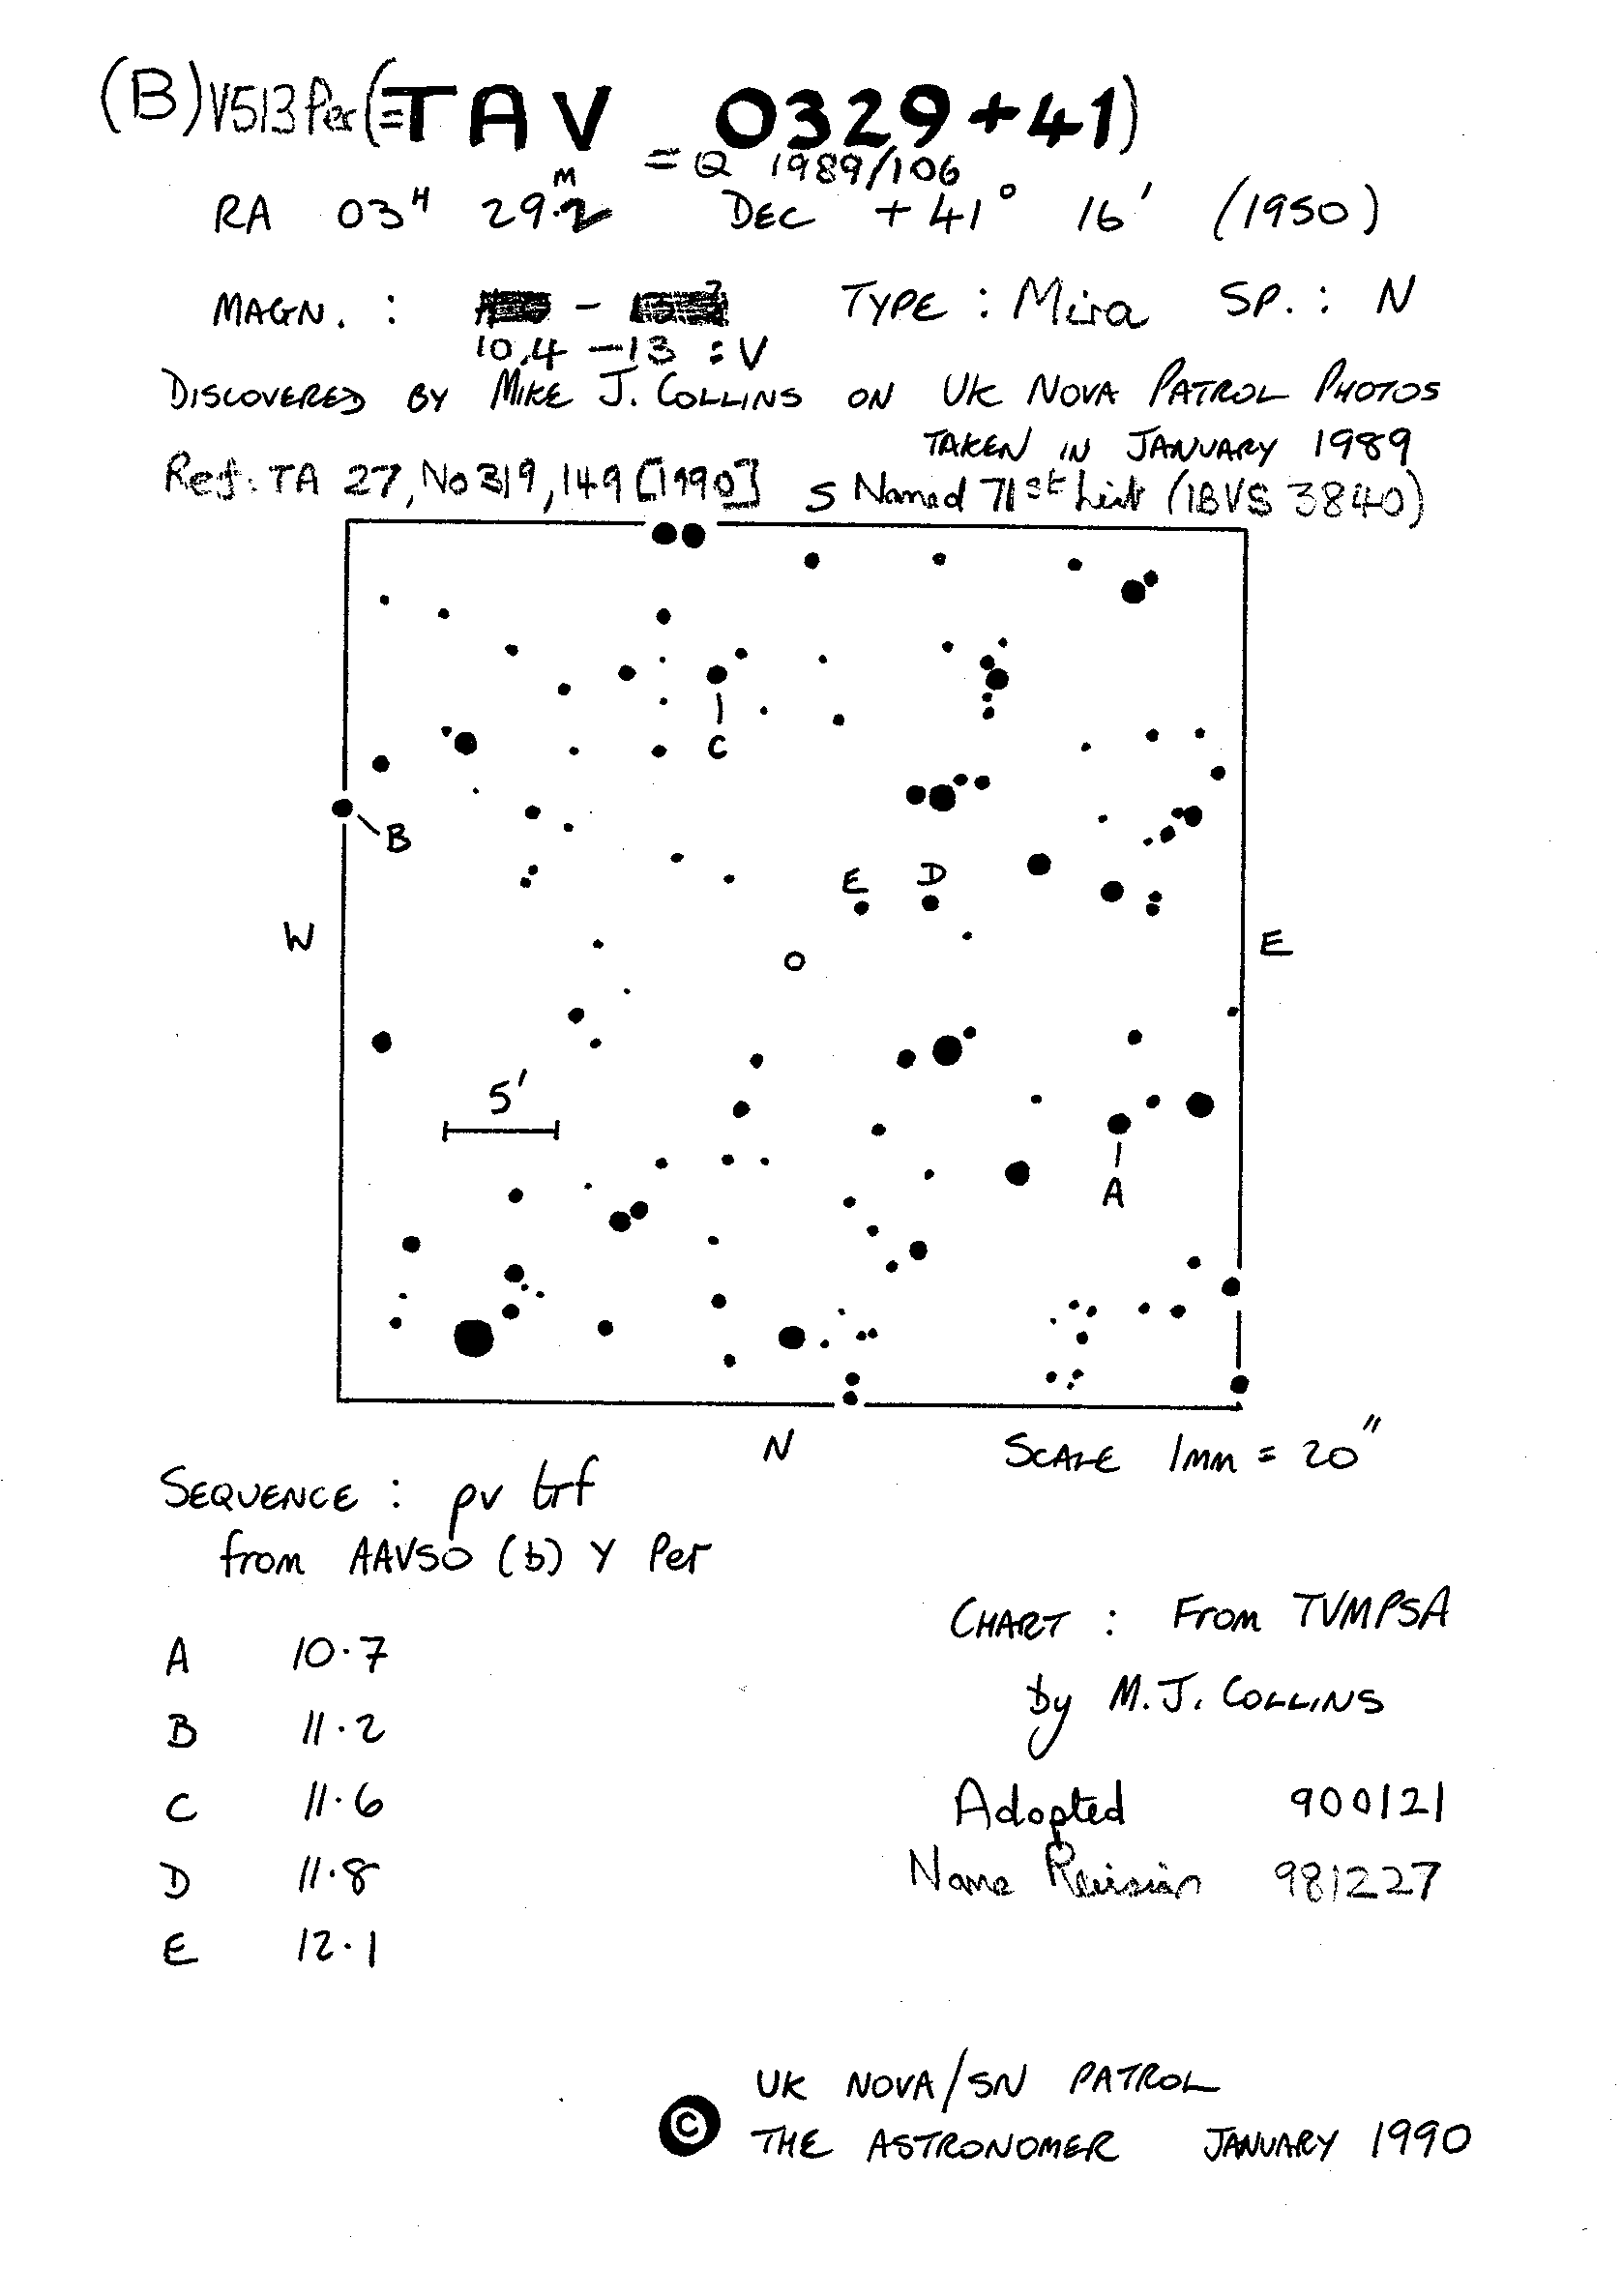 (B) V513 Per (= TAV 0329+41)
= Q 1989/106
RA 03H 29.2M DEC +41° 16' (1950)
MAGN. : – TYPE : Mira SP. : N
10.4 – 13 : V
DISCOVERED BY MIKE J. COLLINS ON UK NOVA PATROL PHOTOS
TAKEN IN JANUARY 1989
Ref: TA 27, No 319, 149 [1990] S Named 71st List (IBVS 3840)
C
B
E D
W E
5'
A
N SCALE 1mm = 20"
SEQUENCE : pv trf
from AAVSO (b) Y Per
CHART : From TVMPSA
by M.J. COLLINS
A 10.7
B 11.2
C 11.6
D 11.8
E 12.1
Adopted 900121
Name Revision 981227
© UK NOVA/SN PATROL
THE ASTRONOMER JANUARY 1990